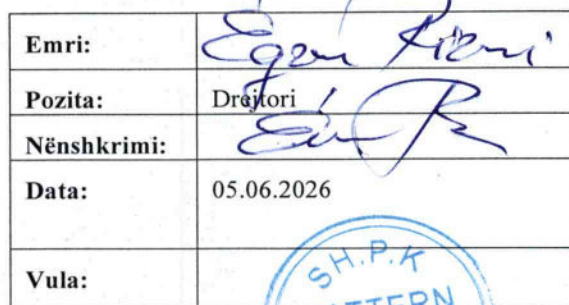 Emri: Egzon Rizani
Pozita: Drejtori
Nënshkrimi:
Data: 05.06.2026
Vula:
SH.P.K